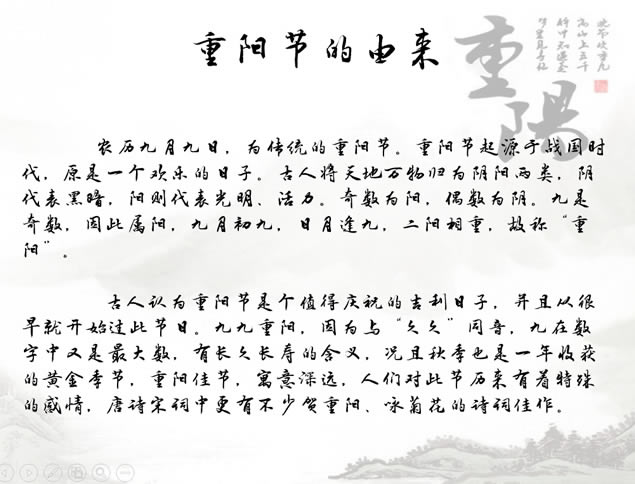 重阳节的由来
重陽
农历九月九日，为传统的重阳节。重阳节起源于战国时
代，原是一个欢乐的日子。古人将天地万物归为阴阳两类，阴
代表黑暗，阳则代表光明、活力。奇数为阳，偶数为阴。九是
奇数，因此属阳，九月初九，日月逢九，二阳相重，故称“重
阳”。
古人认为重阳节是个值得庆祝的吉利日子，并且从很
早就开始过此节日。九九重阳，因为与“久久”同音，九在数
字中又是最大数，有长久长寿的含义，况且秋季也是一年收获
的黄金季节，重阳佳节，寓意深远，人们对此节历来有着特殊
的感情，唐诗宋词中更有不少贺重阳、咏菊花的诗词佳作。